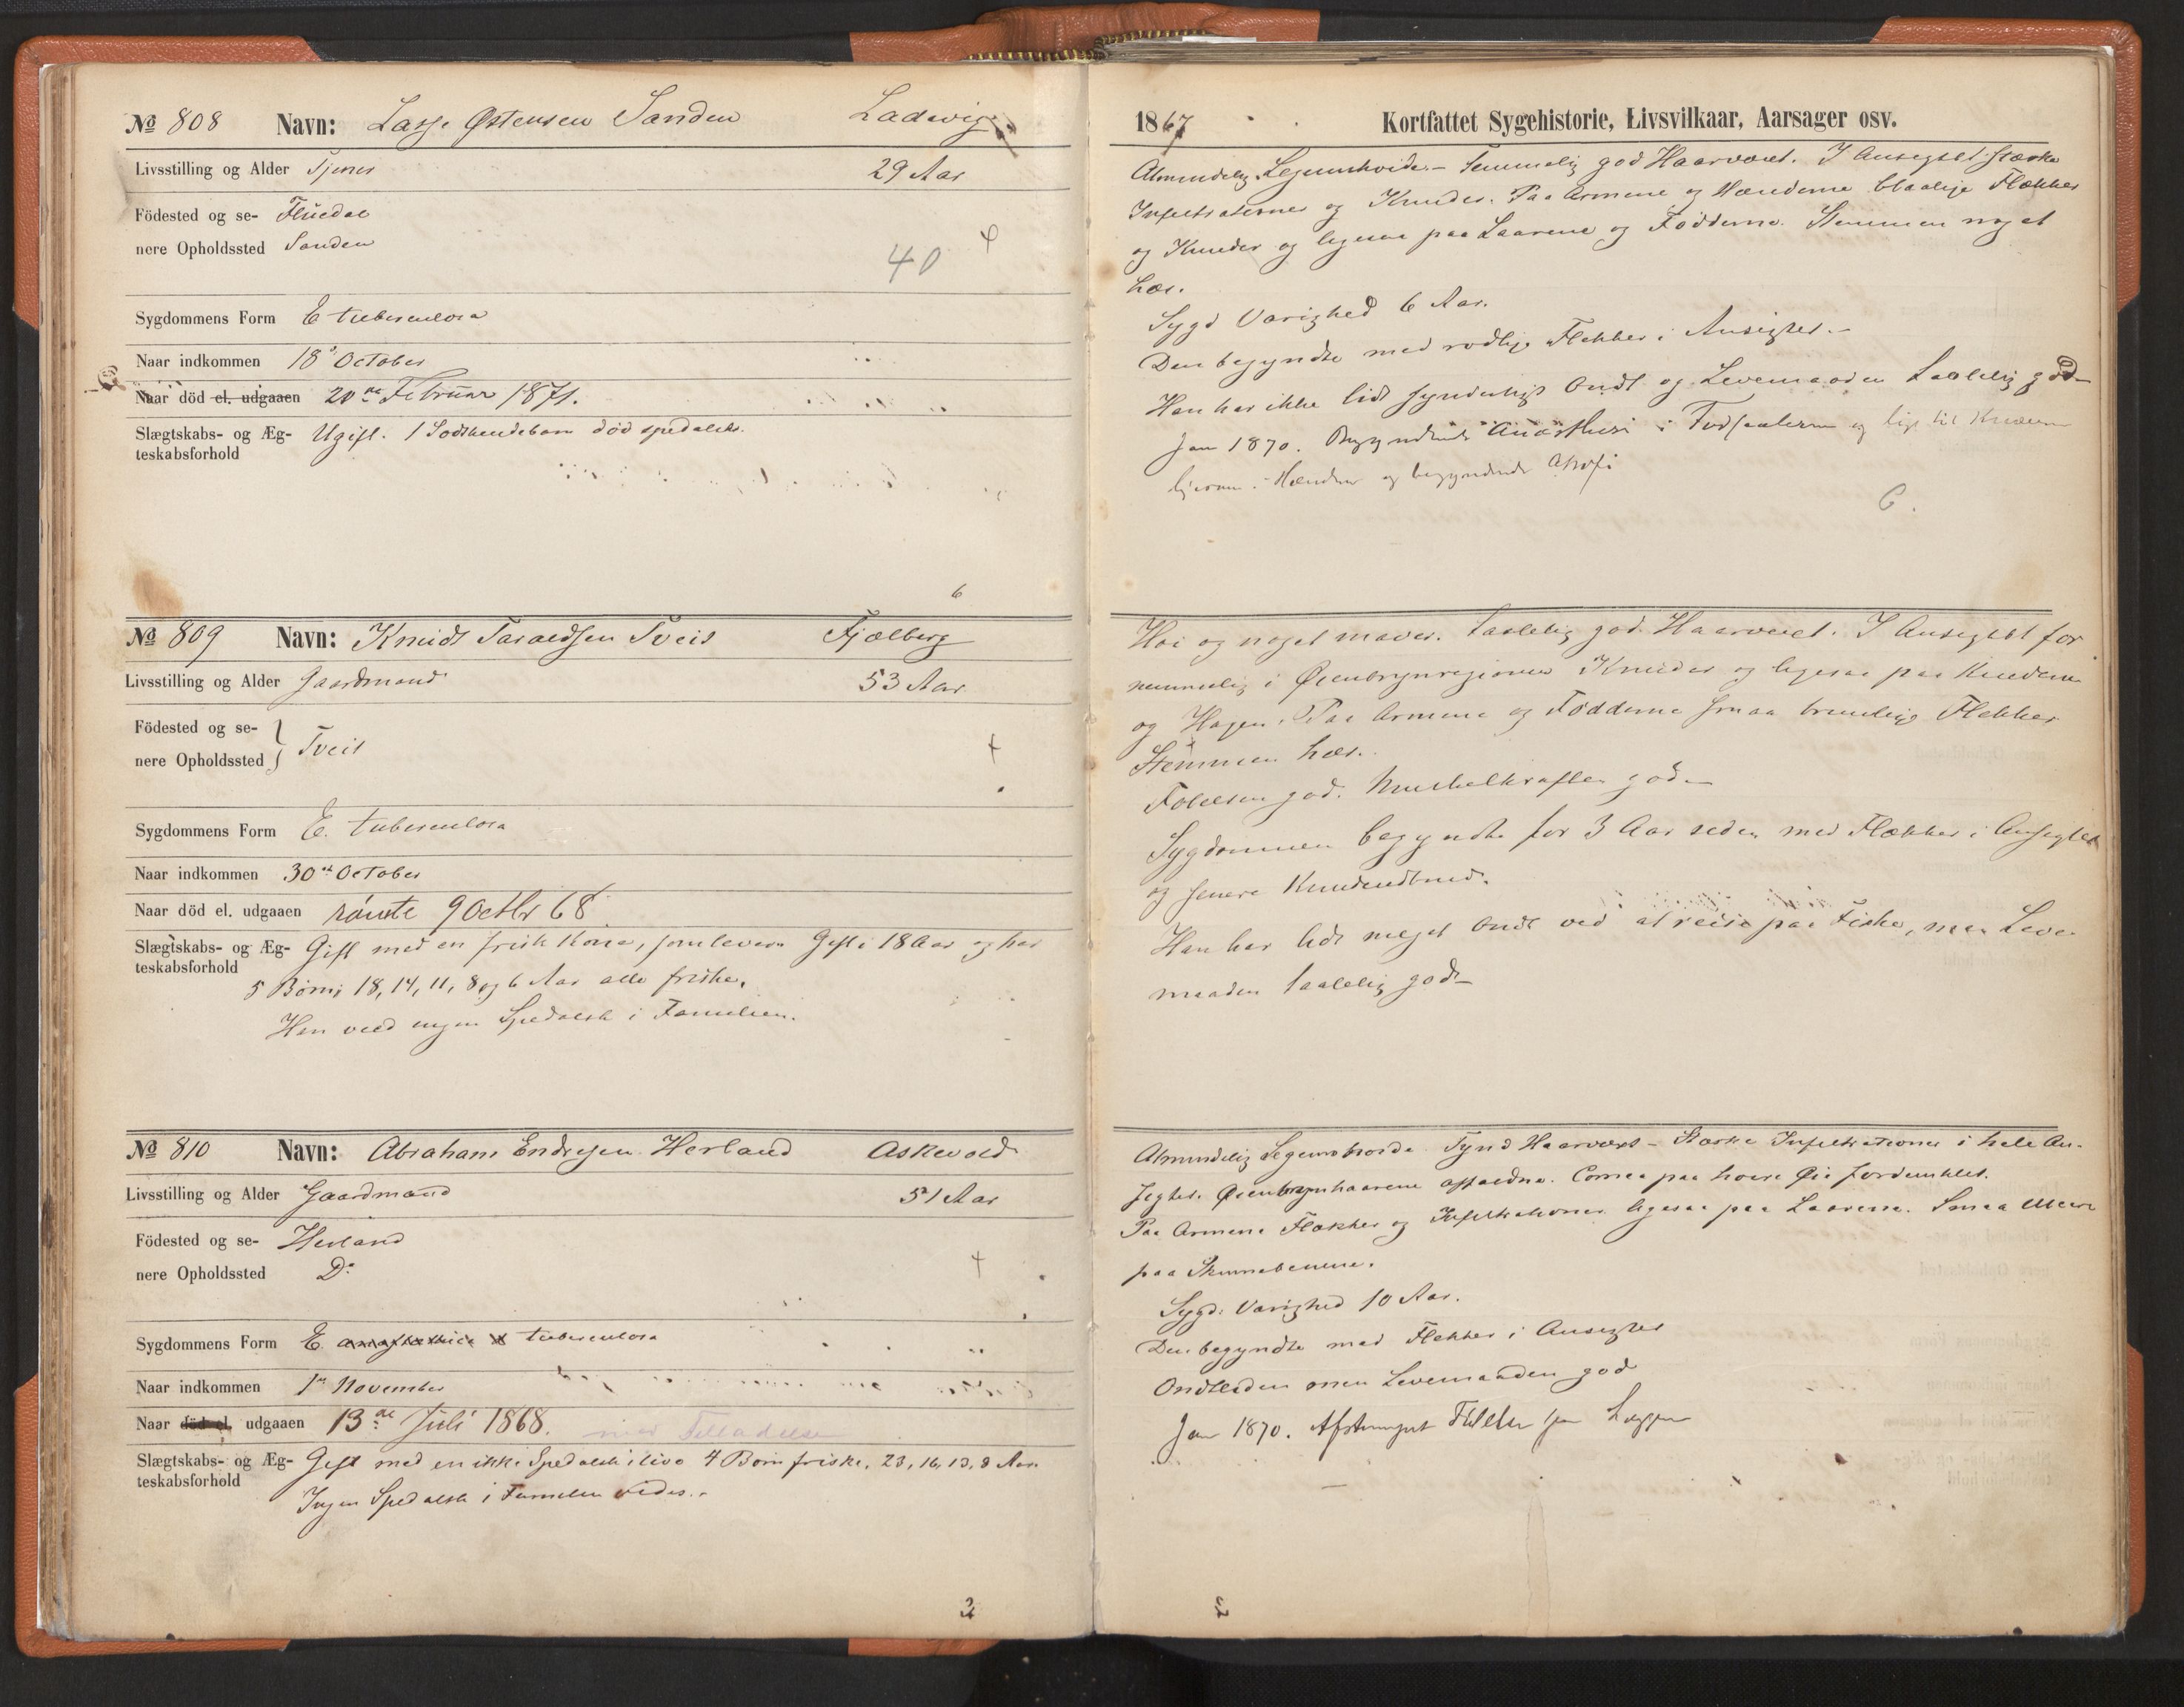 № 808 Navn: Lasse Østensen Sanden Ladevig
Livsstilling og Alder Tjener 29 Aar
Födested og se- Fluedal
nere Opholdssted Sanden
40
Sygdommens Form E tuberculosa
Naar indkommen 18' October
Naar död el. udgaaen 20de Februar 1871.
Slægtskabs- og Æg- Ugift. 1 Sødskendebarn død spedalsk.
teskabsforhold
6
№ 809 Navn: Knudt Taraldsen Tveit Fjælberg
Livsstilling og Alder Gaardmand 53 Aar
Födested og se-
nere Opholdssted Tveit
Sygdommens Form E. tuberculosa
Naar indkommen 30te October
Naar död el. udgaaen rømte 9 Octbr 68
Slægtskabs- og Æg- Gift med en frisk Kone, som lever. Gift i 18 Aar og har
teskabsforhold
5 Børn; 18, 14, 11, 8 og 6 Aar alle friske.
Han veed ingen Spedalsk i Familien.
№ 810 Navn: Abraham Endresen Herland Askevold
Livsstilling og Alder Gaardmand 51 Aar
Födested og se- Herland
nere Opholdssted Do
Sygdommens Form E. anæsthetica & tuberculosa
Naar indkommen 1ste November
Naar död el. udgaaen 13de Juli 1868. med Tilladelse
Slægtskabs- og Æg- Gift med en ikke Spedalsk i live 4 Børn friske, 23, 16, 13, 8 Aar
teskabsforhold
Ingen Spedalsk i Familien vides.
1867 Kortfattet Sygehistorie, Livsvilkaar, Aarsager osv.
Almindelig Legemshøide. Temmelig god Haarvæxt. I Ansigtet stærke
Infiltrationer og Knuder. Paa Armene og Hænderne blaalige Flekker
og Knuder og ligesaa paa Laarene og Fødderne. Stemmen noget
hæs.
Sygd Varighed 6 Aar.
Den begyndte med rødlige Flekker i Ansigtet.
Han har ikke lidt synderligt Ondt og Levemaaden taalelig god
Jan 1870. Begyndende Anæsthesi i Fodsaalerne og lige til Knæerne
ligesom i Hænderne og begyndende Atrofi
6.
Høi og noget maver. Taalelig god Haarvæxt. I Ansigtet for
nemmelig i Øienbrynregionen Knuder og ligesaa paa Kinderne
og Hagen. Paa Armene og Fødderne smaa brunlige Flekker
Stemmen hæs.
Følelsen god. Muskelkraften god
Sygdommen begyndte for 3 Aar siden med Flekker i Ansigtet
og senere Knudeudbrud.
Han har lidt meget Ondt ved at reise paa Fiske, men Leve-
maaden taalelig god
Almindelig Legemshøide. Tynd Haarvæxt. Stærke Infiltrationer i hele An-
sigtet. Øienbrynhaarene affaldne. Cornea paa høire Øie fordunklet.
Paa Armene Flekker og Infiltrationer ligesaa paa Laarene. Smaa Ulcera
paa Skinnebenene.
Sygd: Varighed 10 Aar.
Den begyndte med Flekker i Ansigtet
Ondtliden men Levemaaden god
Jan 1870. Afstumpet Følelse paa Læggene